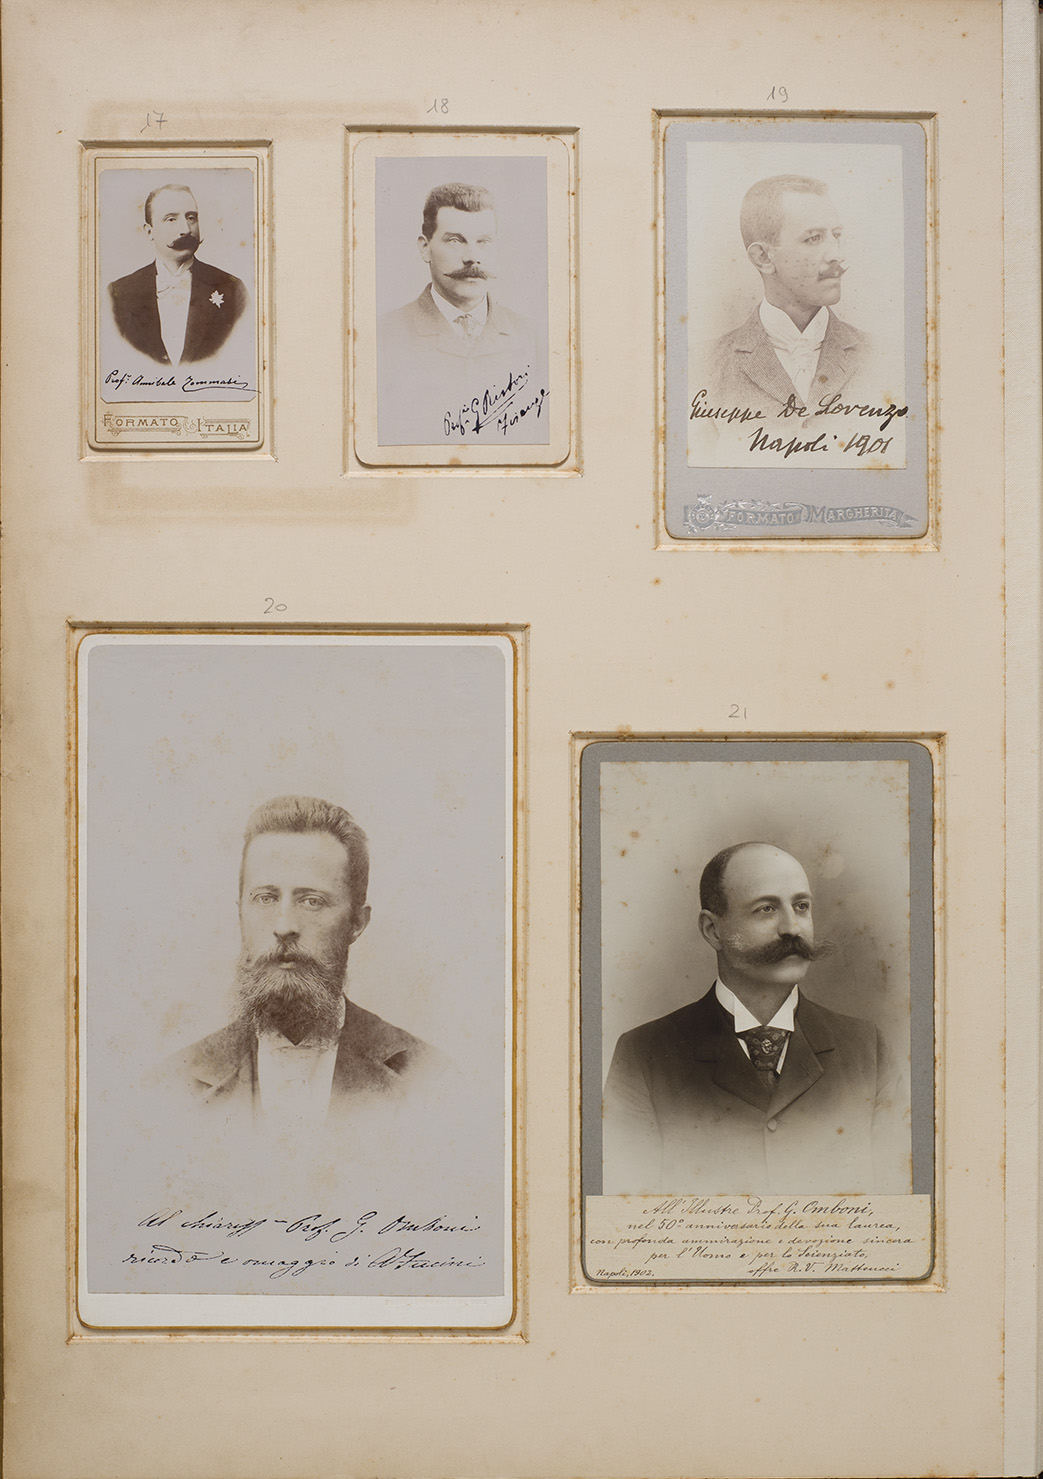 17
Prof.r Annibale Tommasi
FORMATO ITALIA
18
Prof.re G. Ristori
Firenze
19
Giuseppe De Lorenzo
Napoli 1901
FORMATO MARGHERITA
20
Al chiariss.mo Prof. G. Omboni
ricordo e omaggio di
21
All'Illustre Prof. G. Omboni,
nel 50º anniversario della sua laurea,
con profonda ammirazione e devozione sincera
per l'Uomo e per lo Scienziato,
offre R. V. Matteucci
Napoli, 1902.